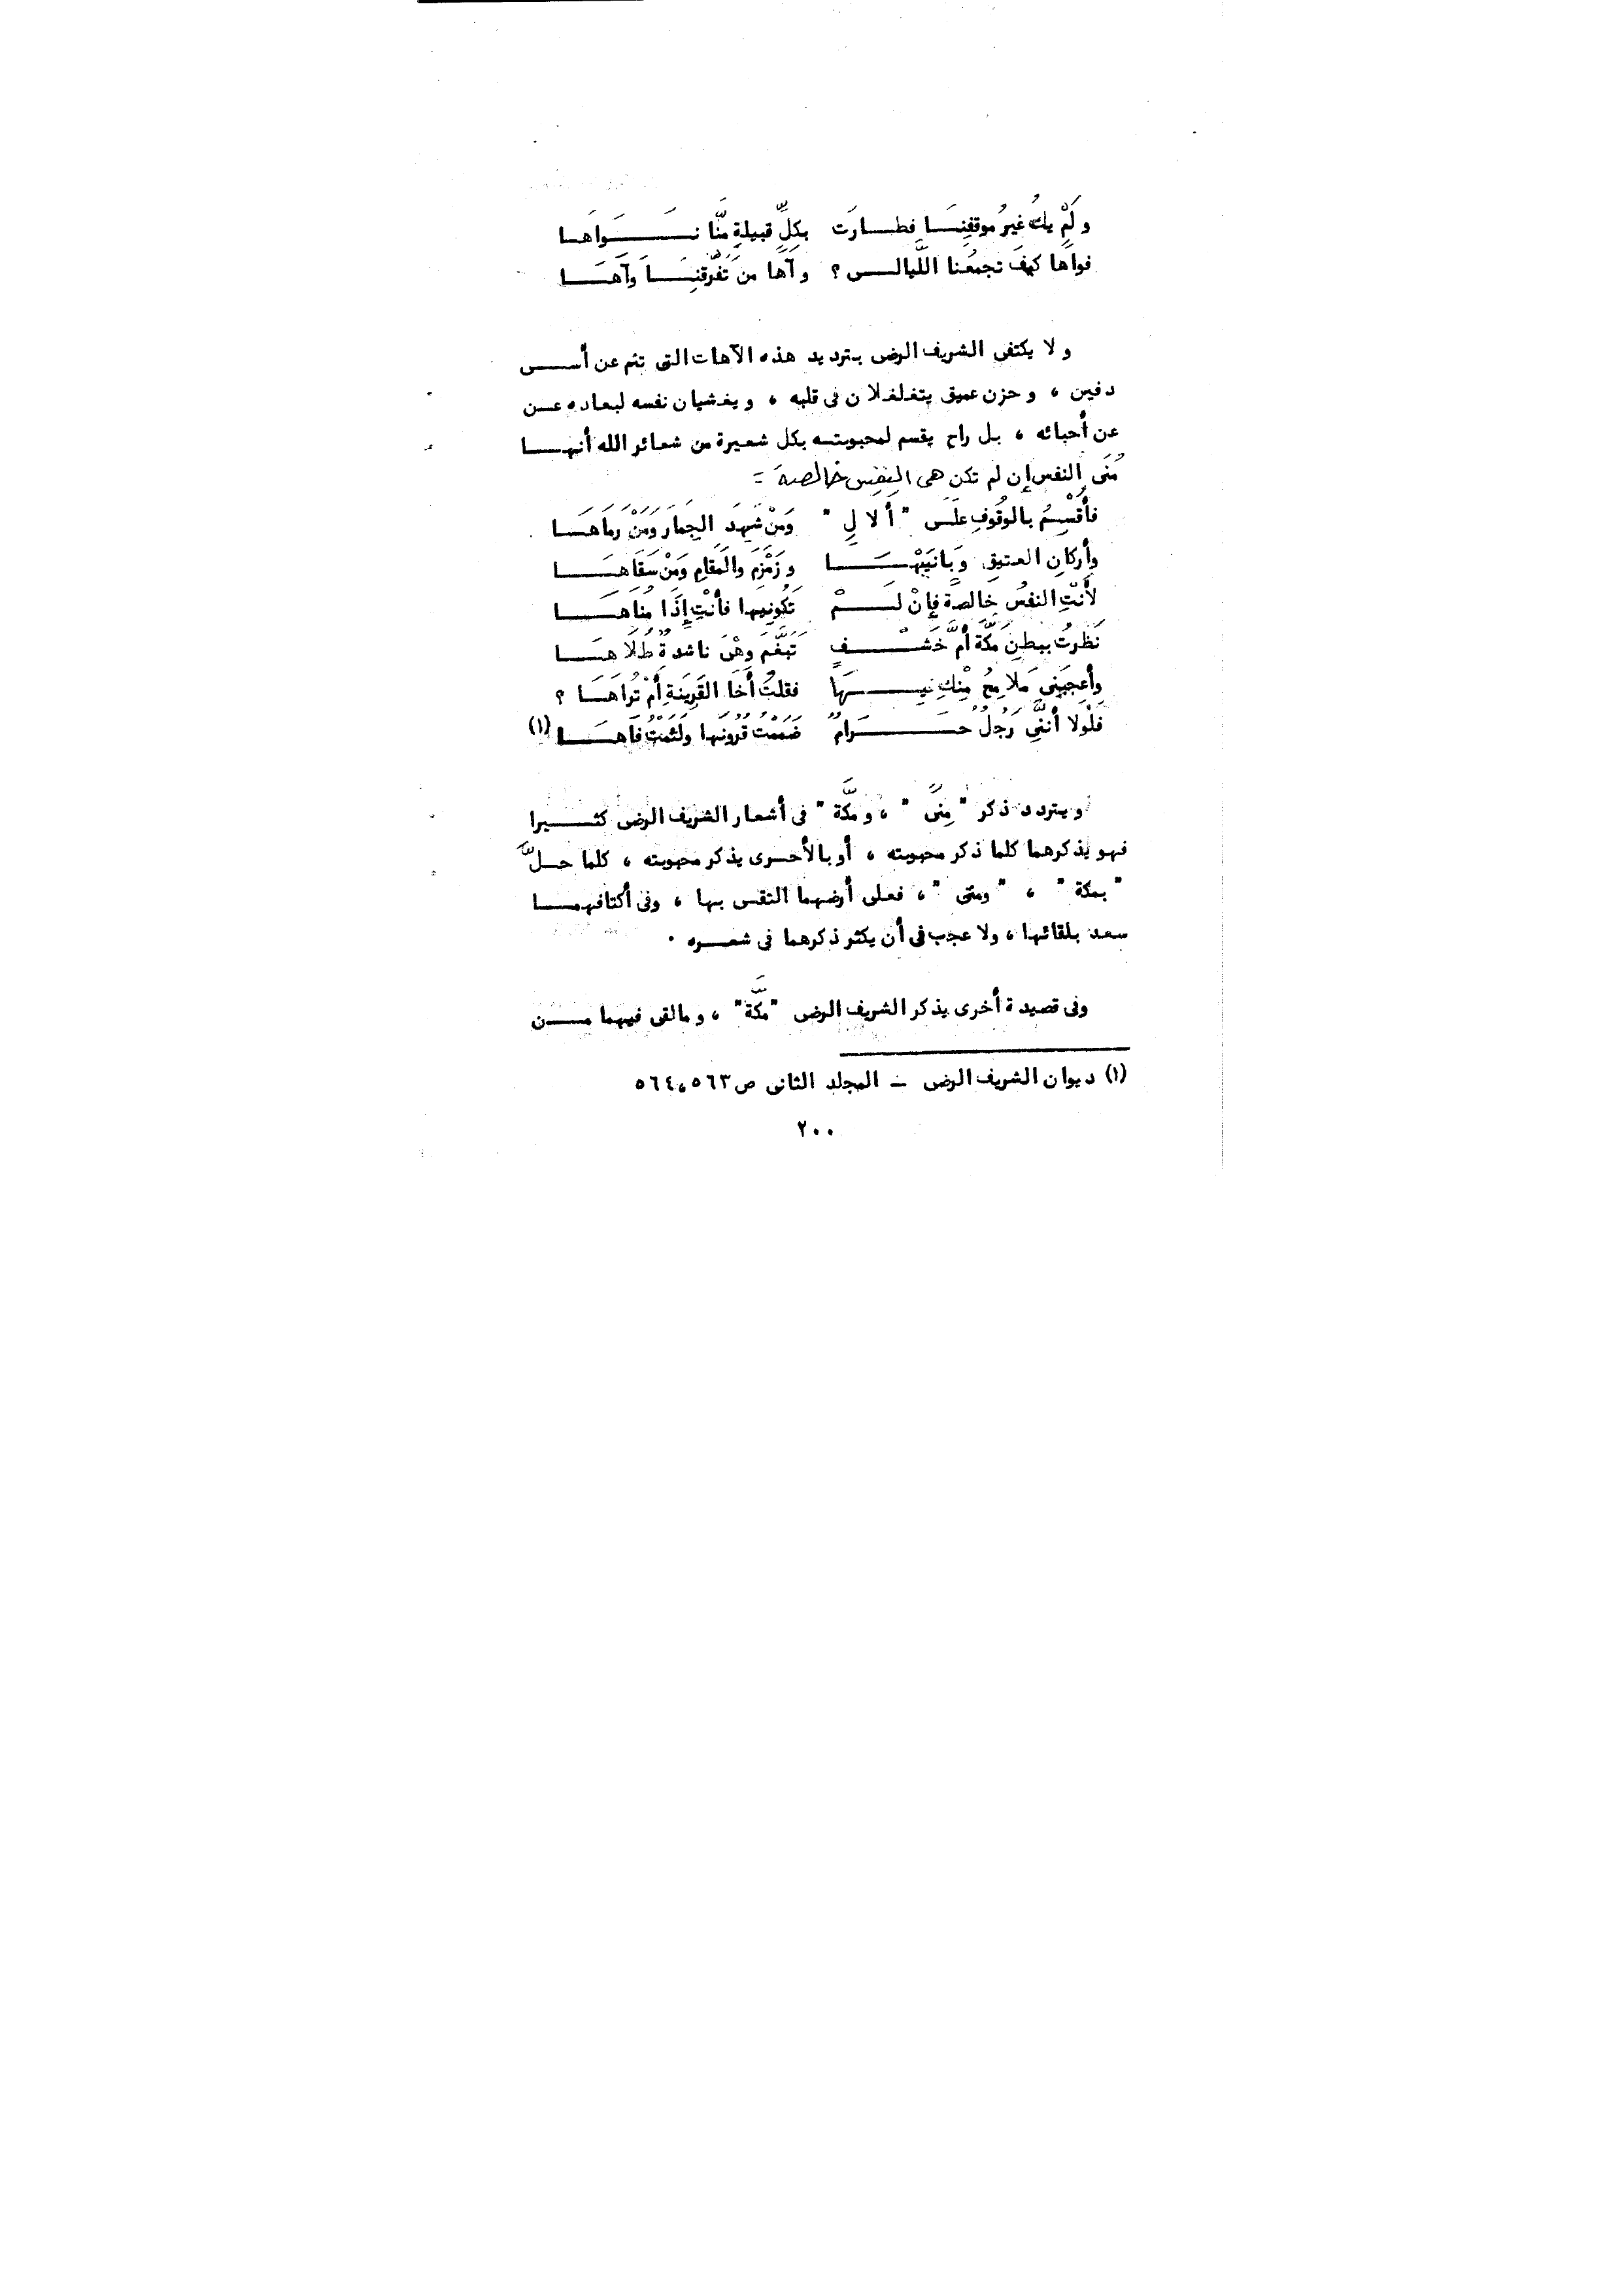 وَلَمْ يكُ غيرُ موقفِنَا فطارَت بكلِّ قبيلةٍ مِنَّا نَوَاهَا
فواهًا كيفَ تجمعُنا اللَّيالى ؟ وآهًا من تَفَرُّقِنَا وآهَا
ولا يكتفى الشريف الرضى بترديد هذه الآهات التى تنم عن أسى
دفين ، وحزن عميق يتغلغلان فى قلبه ، ويغشيان نفسه لبعاده عن
عن أحبائه ، بل راح يقسم لمحبوبته بكل شعيرة من شعائر الله أنها
مُنَى النفس إن لم تكن هى النفس خالصة :
فأُقْسِمُ بالوُقُوفِ عَلَى " ألالِ " وَمَنْ شَهِدَ الجِمَارَ وَمَنْ رمَاهَا
وأركانِ العتيقِ وَبَانَيَيْهَا وزَمْزَمَ والمَقَامِ وَمَنْ سَقَاهَا
لأَنْتِ النفسُ خالصةً فإنْ لَمْ تَكُونِيها فأَنْتِ إِذًا مُنَاهَا
نَظَرتُ ببطنِ مَكَّةَ أُمَّ خَشْفٍ تَبَغَّمَ وَهْىَ ناشدةٌ طُلَاهَا
وأعجبَنِى مَلامِحُ مِنْكِ فِيهَا فقلتُ أَخَا القَرِينَةِ أَمْ تُرَاهَا ؟
فَلَوْلا أنَّنِى رَجُلٌ حَرَامٌ ضَمَمْتُ قُرُونَهَا ولَثَمْتُ فَاهَا (١)
ويتردد ذكر " مِنًى " ، و مكَّة " فى أشعار الشريف الرضى كثيرا
فهو يذكرهما كلما ذكر محبوبته ، أو بالأحرى يذكر محبوبته ، كلما حلَّ
" بمكة " ، " ومنى " ، فعلى أرضهما التقى بها ، وفى أكنافهما
سعد بلقائها ، ولا عجب فى أن يكثر ذكرهما فى شعره .
وفى قصيدة أخرى يذكر الشريف الرضى " مَكَّة " ، ومالقى فيهما من
(١) ديوان الشريف الرضى – المجلد الثانى ص ٥٦٣ ، ٥٦٤
٢٠٠